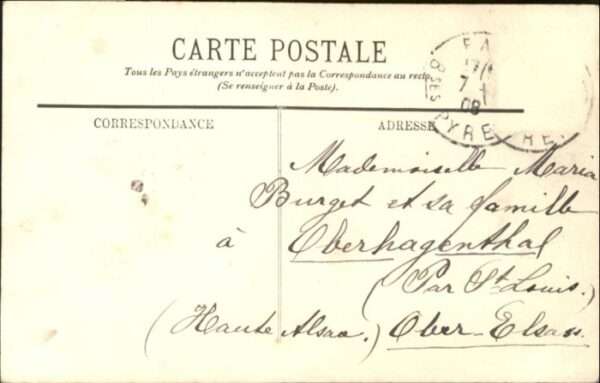 CARTE POSTALE
Tous les Pays étrangers n'acceptent pas la Correspondance au recto
(Se renseigner à la Poste).
CORRESPONDANCE
ADRESSE
Mademoiselle Maria
Burget et sa famille
à Oberhagenthal
(Par St Louis.)
(Haute Alsace.) Ober-Elsass
08
BSES PYRE